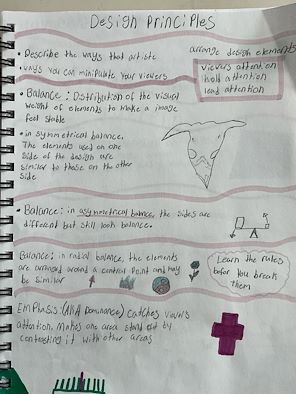 Design Principles
• Describe the ways that artists arrange design elements
• ways you can minipulate your viewers
viewers attention
hold attention
lead attention
• Balance: Distribution of the visual
weight of elements to make a image
feel stable
• in symmetrical balance,
The elements used on one
side of the design are
similar to those on the other
side
• Balance: in asymmetrical balance, the sides are
different but still look balance.
Balance: in radial balance, the elements
are arranged around a central point and may
be similar
Learn the rules
befor you break
them
Emphasis: (AKA Dominance) Catches viewers
attention, makes one area stand out by
contrasting it with other areas